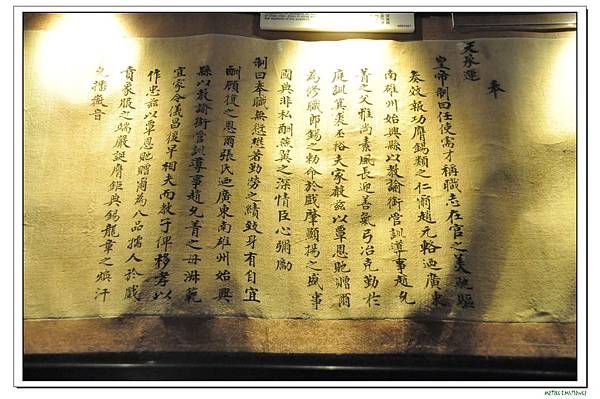 奉
天承運
皇帝制曰任使需才稱職志在官之美馳驅
奏效報功膺錫類之仁爾趙元輅迺廣東
南雄州始興縣以教諭銜管訓導事趙允
菁之父雅尚素風長迎善氣弓冶克勤於
庭訓箕裘丕裕夫家教茲以覃恩貤贈爾
為修職郎錫之勅命於戲肇顯揚之盛事
國典非私酬燕翼之深情臣心彌勵
制曰奉職無愆懋著勤勞之績致身有自宜
酬顧復之恩爾張氏迺廣東南雄州始興
縣以教諭銜管訓導事趙允菁之母淑範
宜家令儀昌後早相夫而教子俾移孝以
作忠茲以覃恩貤贈爾為八品孺人於戲
賁象服之端嚴誕膺鉅典錫龍章之煥汗
允播徽音